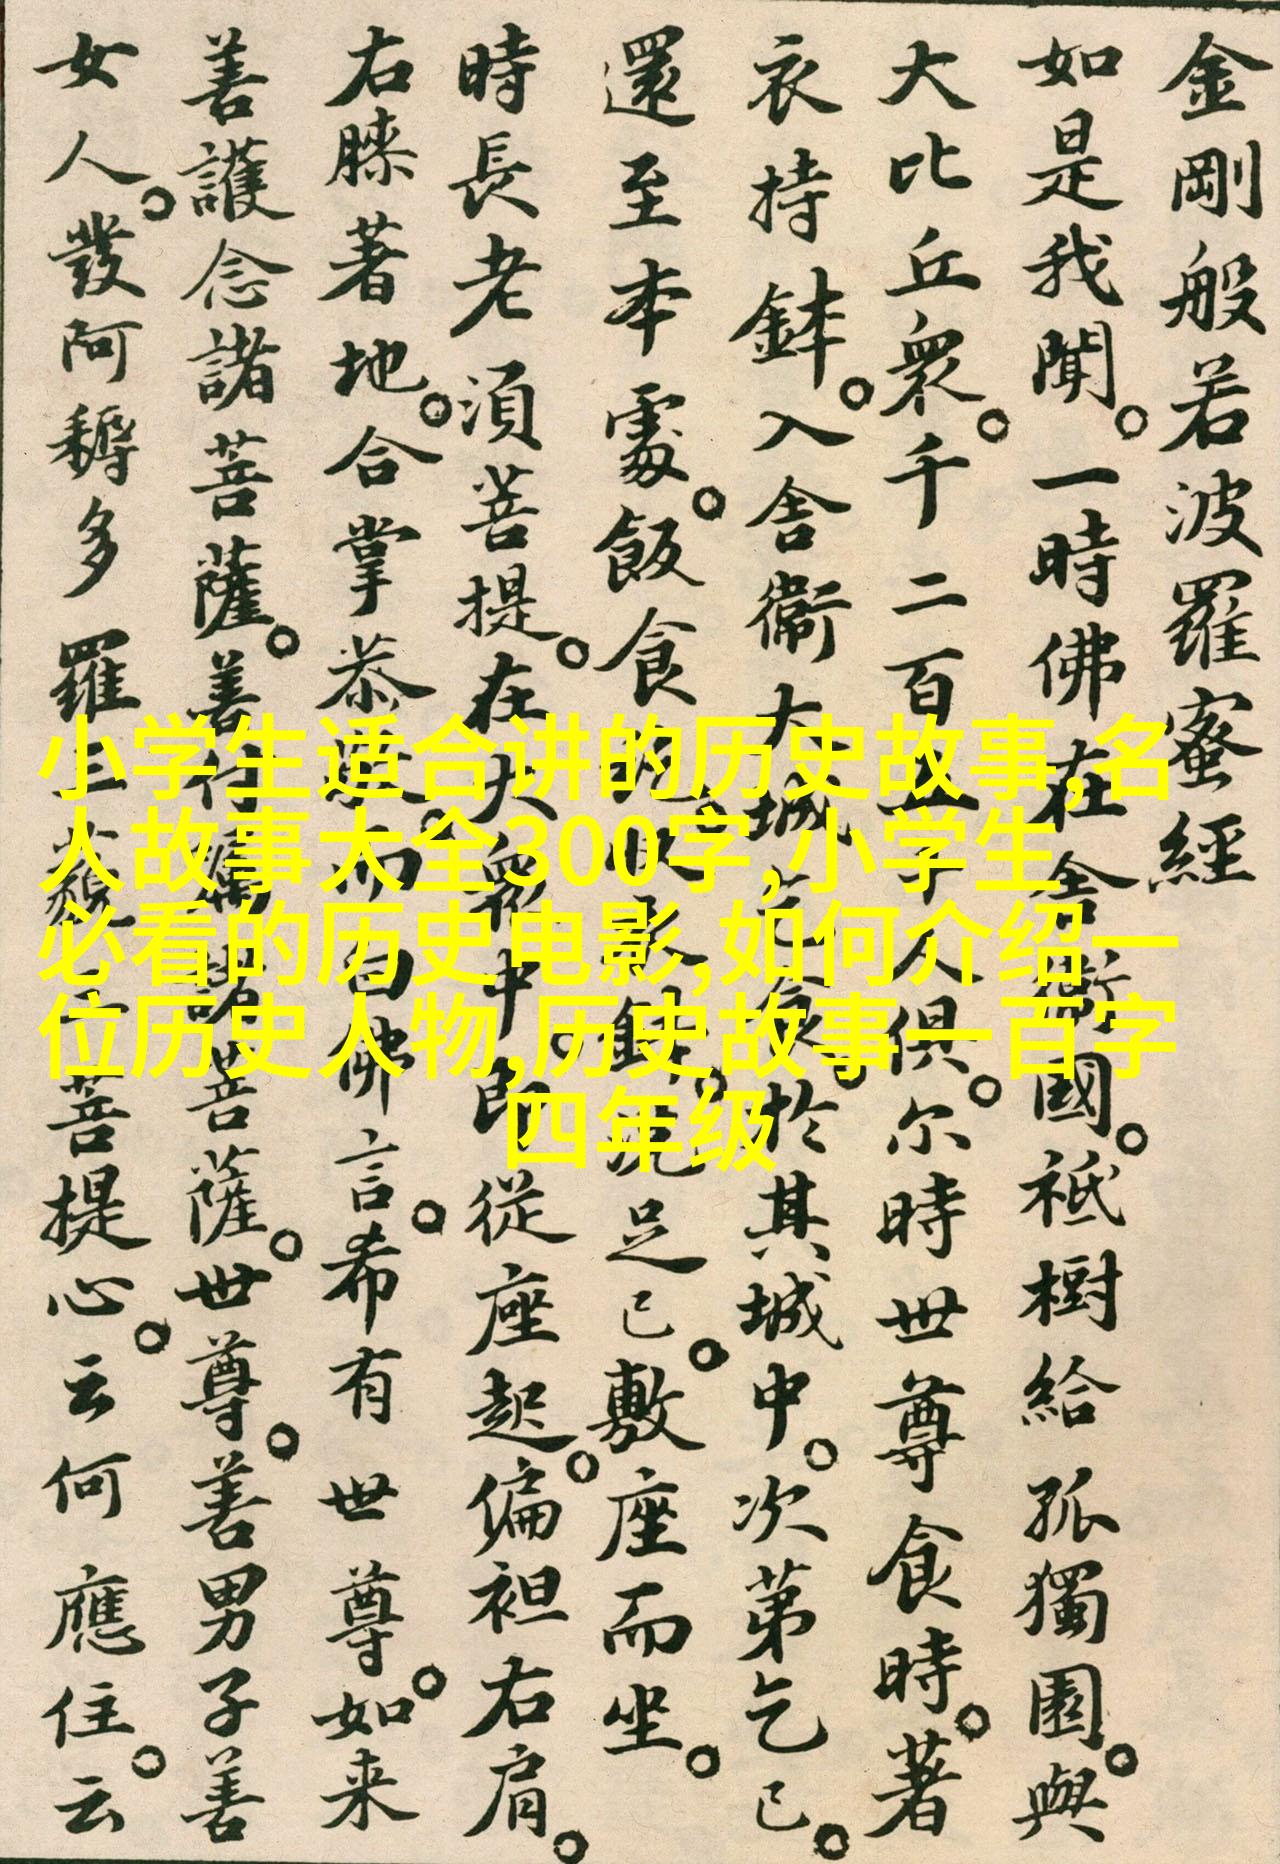 金剛般若波羅蜜經
如是我聞。一時佛在舍衛國。祇樹給孤獨園。與
大比丘衆。千二百五十人俱。尔時世尊食時。著
衣持鉢。入舍衛大城乞食。於其城中。次第乞已。
還至本處。飯食訖。收衣鉢。洗足已。敷座而坐。
時長老須菩提。在大衆中。即從座起。偏袒右肩。
右膝著地。合掌恭敬。而白佛言。希有世尊。如来
善護念諸菩薩。善付囑諸菩薩。世尊。善男子善
女人。發阿耨多羅三藐三菩提心。云何應住。云
小学生适合讲的历史故事,名
人故事大全300字,小学生
必看的历史电影,如何介绍一
位历史人物,历史故事一百字
四年级